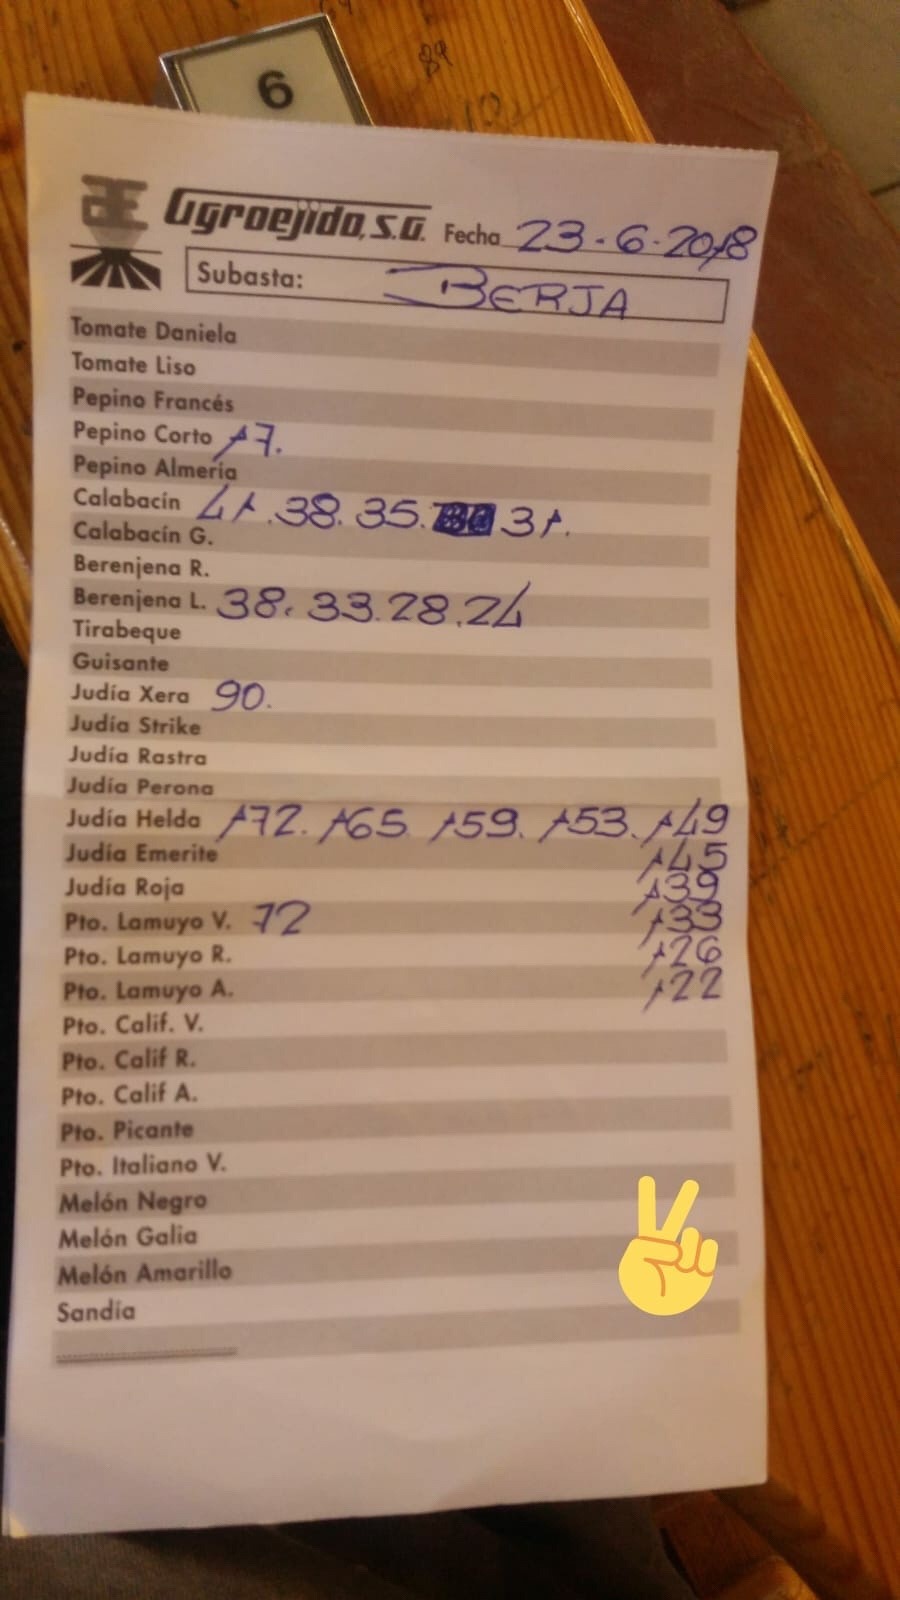 6
89
Agroejido, S.A. Fecha 23-6-2018
Subasta: BERJA
Tomate Daniela
Tomate Liso
Pepino Francés
Pepino Corto 17.
Pepino Almería
Calabacín 41.38.35. 31.
Calabacín G.
Berenjena R.
Berenjena L. 38. 33.28.24
Tirabeque
Guisante
Judía Xera 90.
Judía Strike
Judía Rastra
Judía Perona
Judía Helda 172. 165. 159. 153. 149
Judía Emerite 145
Judía Roja 139
Pto. Lamuyo V. 72 133
Pto. Lamuyo R. 126
Pto. Lamuyo A. 122
Pto. Calif. V.
Pto. Calif R.
Pto. Calif A.
Pto. Picante
Pto. Italiano V.
Melón Negro
Melón Galia
Melón Amarillo
Sandía